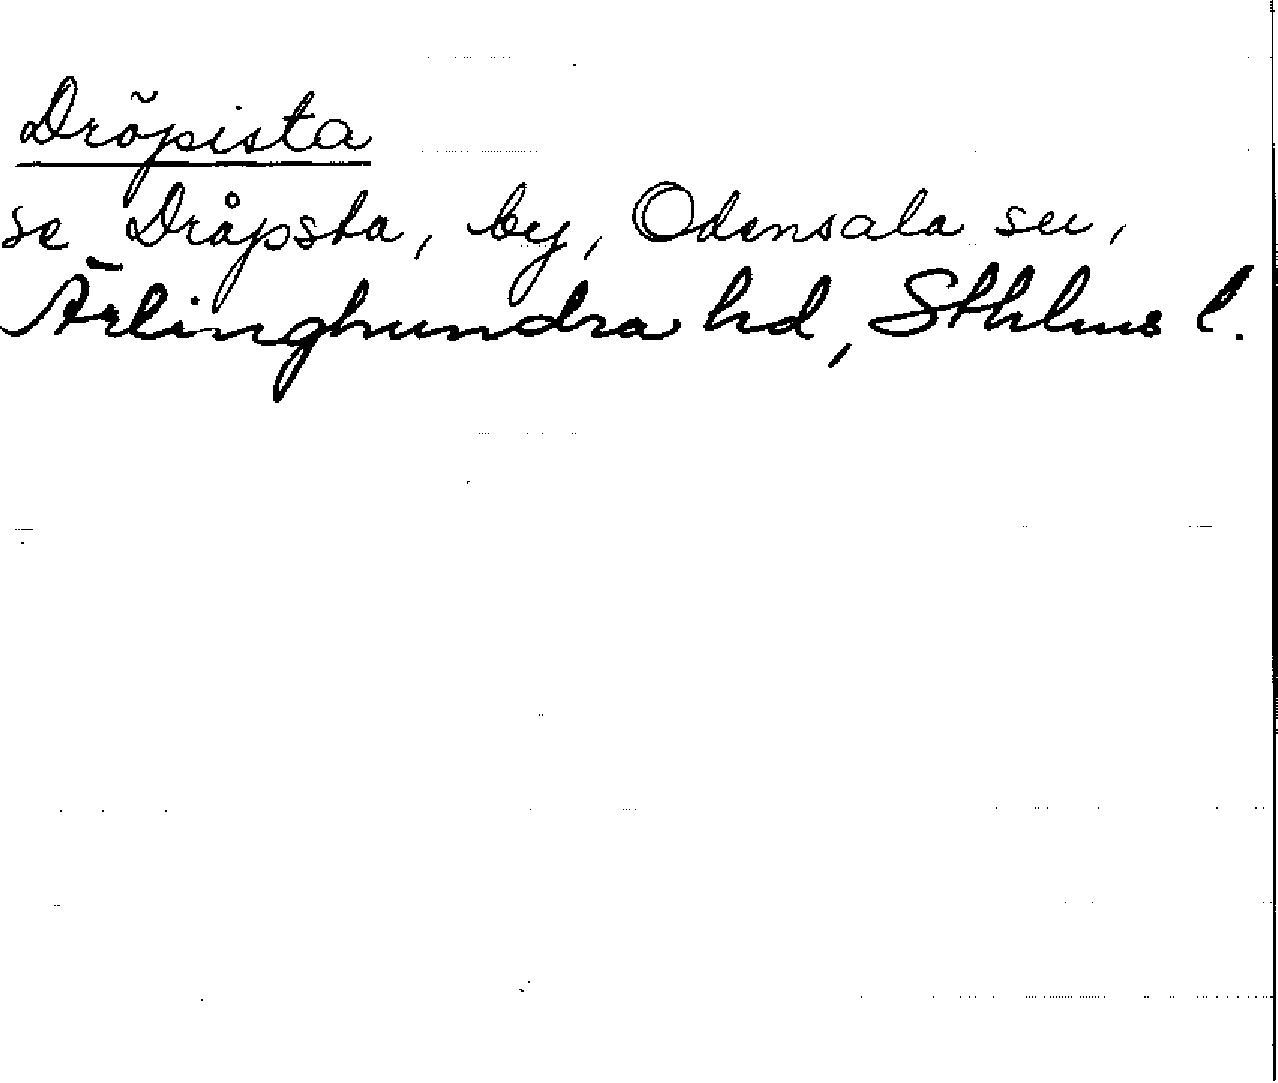 Dröpista
se Dråpsta, by, Odensala sn,
Ärlinghundra hd, Sthlms l.